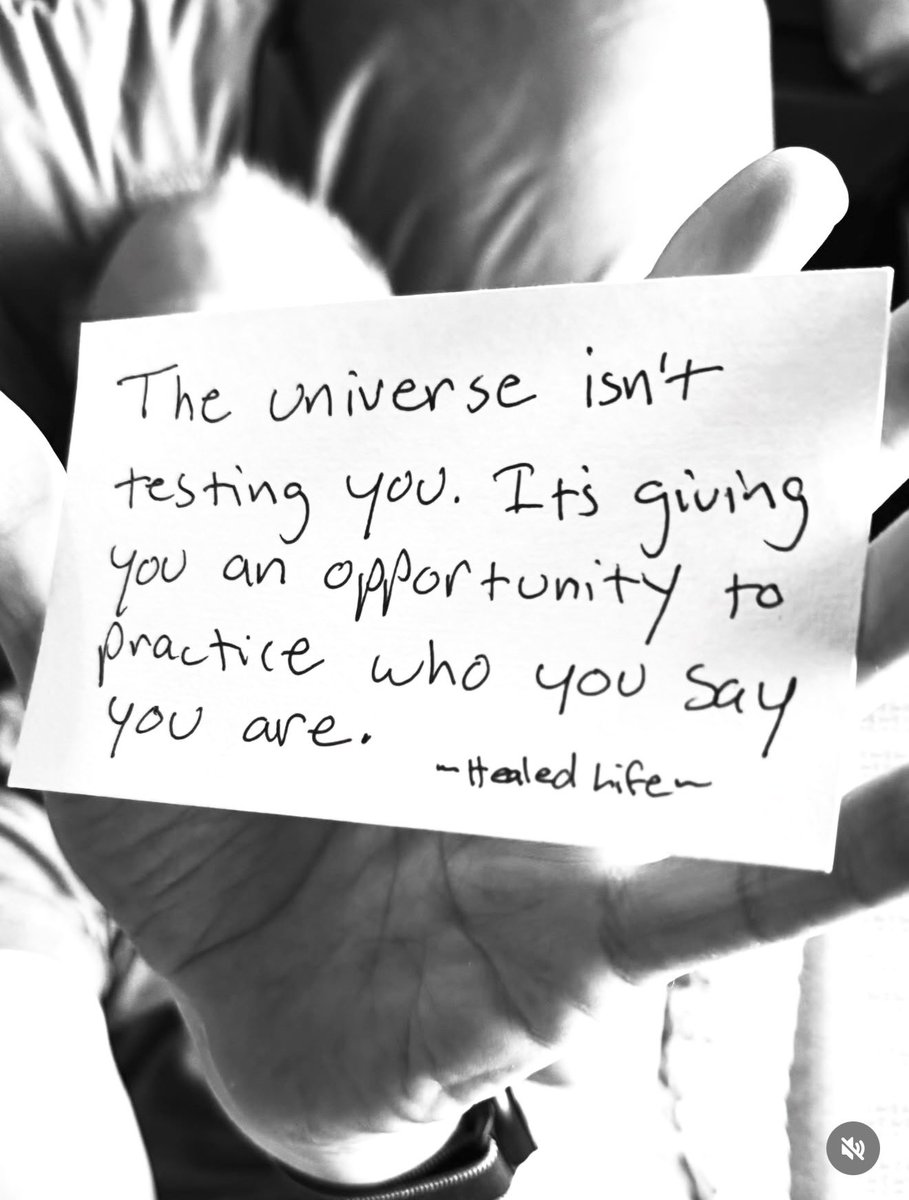 The universe isn't
testing you. It's giving
you an opportunity to
practice who you say
you are.
~Healed Life~